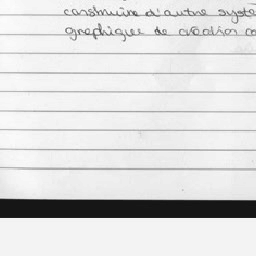 construire d'autre systè
graphiques de création co